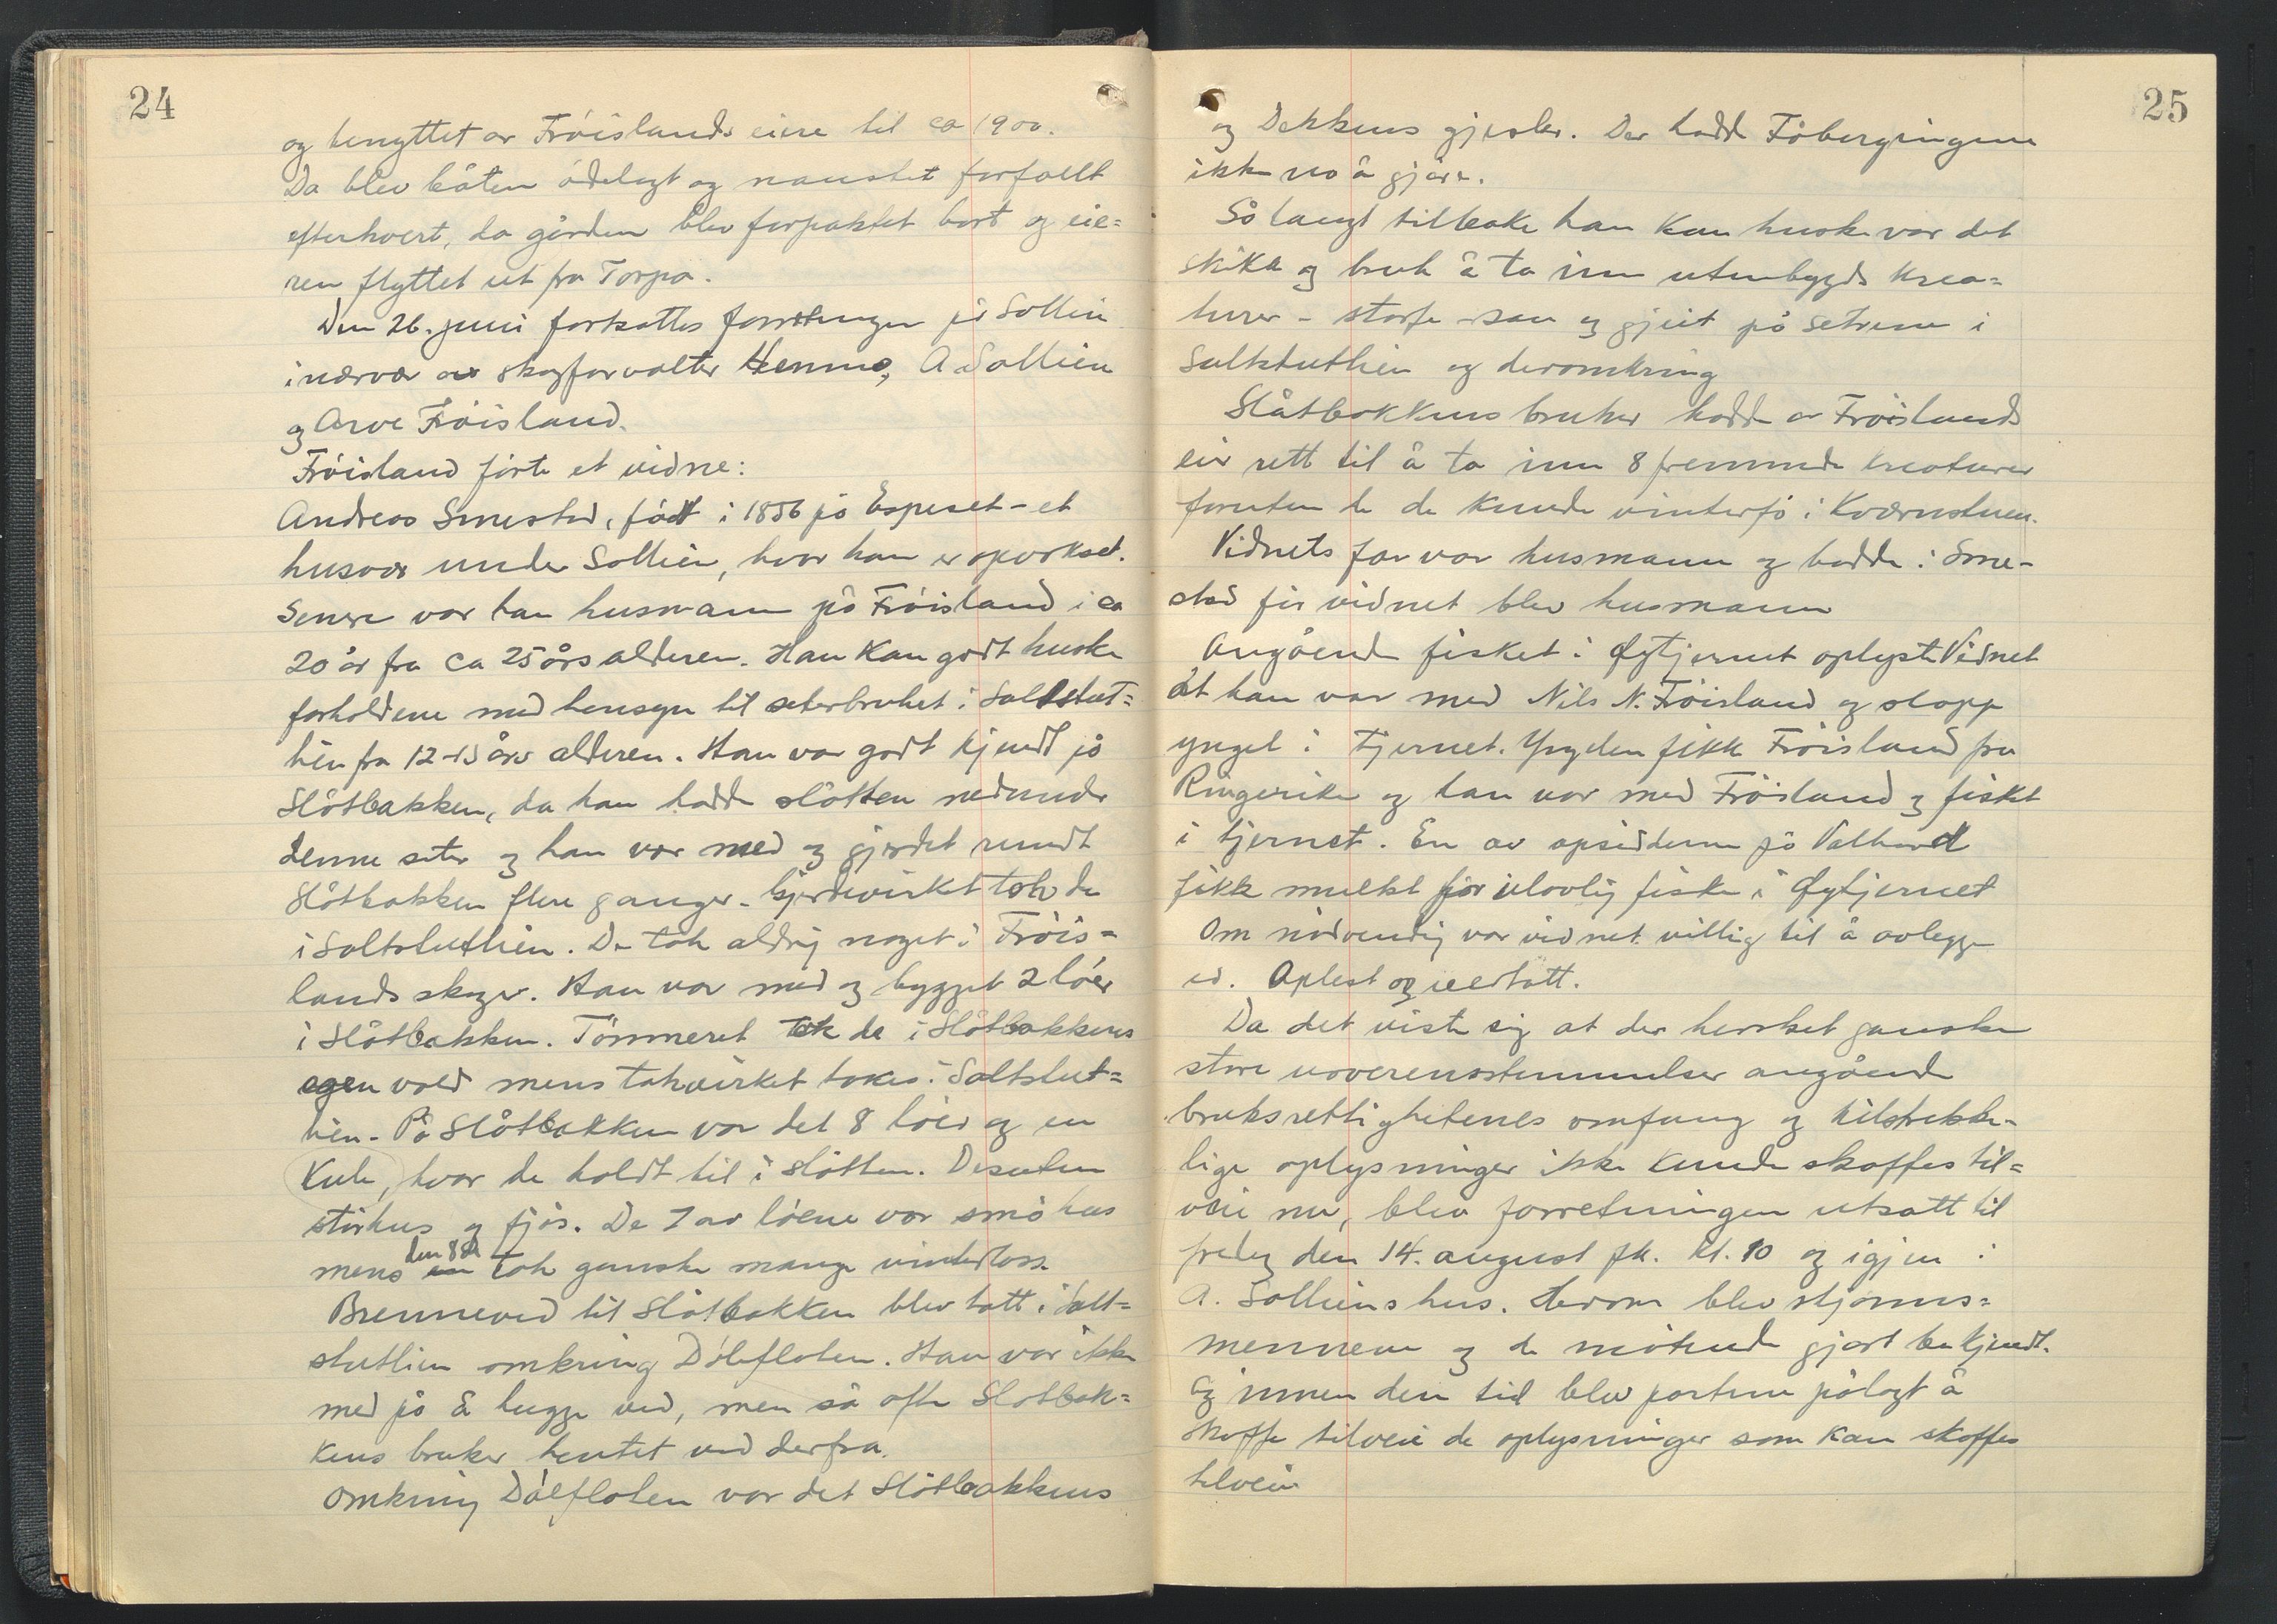 24
og benyttet av Fröislands eiere til ca 1900.
Da blev båten ödelagt og naustet forfallt
efterhvert, da gården blev forpaktet bort og eie=
ren flyttet ut fra Torpa.
Den 26. juni fortsattes forretningen på Sollien
i nærvær av skogforvalter Hennum, A Sollien
og Arve Fröisland.
Fröisland förte et vidne:
Andreas Smestad, födt i 1856 på Espeset - et
husvær under Sollien, hvor han er opvokset.
Senere var han husmann på Fröisland i ca
20 år fra ca 25 års alderen. Han kan godt huske
forholdene med hensyn til seterbruket i Saltstut=
lien fra 12-13 års alderen. Han var godt kjendt på
Slåtbakken, da han hadde slåtten nedunder
denne seter og han var med og gjerdet rundt
Slåtbakken flere ganger. Gjerdevirket tok de
i Saltstutlien. De tok aldrig noget i Fröis=
lands skoger. Han var med og bygget 2 löer
i Slåtbakken. Tömmeret tok de i Slåtbakkens
egen vold mens takvirket tokes i Saltstut=
lien. På Slåtbakken var det 8 löer og en
Kule, hvor de holdt til i slåtten. Desuten
störhus og fjös. De 7 av löene var små hus
mens den 8de tok ganske mange vinterlass.
Brenneved til Slåtbakken blev tatt i Salt=
stutlien omkring Dölefloten. Han var ikke
med på å hugge ved, men så ofte Slåtbak=
kens bruker hentet ved derfra.
Omkring Dölefloten var det Slåtbakkens
25
og Dekkens gjesler. Der hadde Fåbergingene
ikke no å gjöre.
Så langt tilbake han kan huske var det
skikk og bruk å ta inn utenbygds krea=
turer - storfe - sau og gjeit på setrene i
Saltstutlien og deromkring
Slåtbakkens bruker hadde av Fröislands
eier rett til å ta inn 8 fremmede kreaturer
foruten de de kunde vinterfö i Kværnstuen.
Vidnets far var husmann og bodde i Sme-
stad för vidnet blev husmann
Angående fisket i Öytjernet oplyste Vidnet
at han var med Nils N. Fröisland og slapp
yngel i tjernet. Yngelen fikk Fröisland fra
Ringerike og han var med Fröisland og fisket
i tjernet. En av opsidderne på
fikk mulkt for ulovlig fiske i Öytjernet
Om nödvendig var vidnet villig til å avlegge
ed. Oplest og vedtatt.
Da det viste sig at der hersket ganske
store uoverensstemmelser angående
bruksrettighetenes omfang og tilstrekke-
lige oplysninger ikke kunde skaffes til=
veie nu, blev forretningen utsatt til
fredag den 14. august fk. kl. 10 og igjen i
A. Solliens hus. Herom blev skjönns=
mennene og de mötende gjort bekjendt.
Og innen den tid blev partene pålagt å
skaffe tilveie de oplysninger som kan skaffes
tilveie